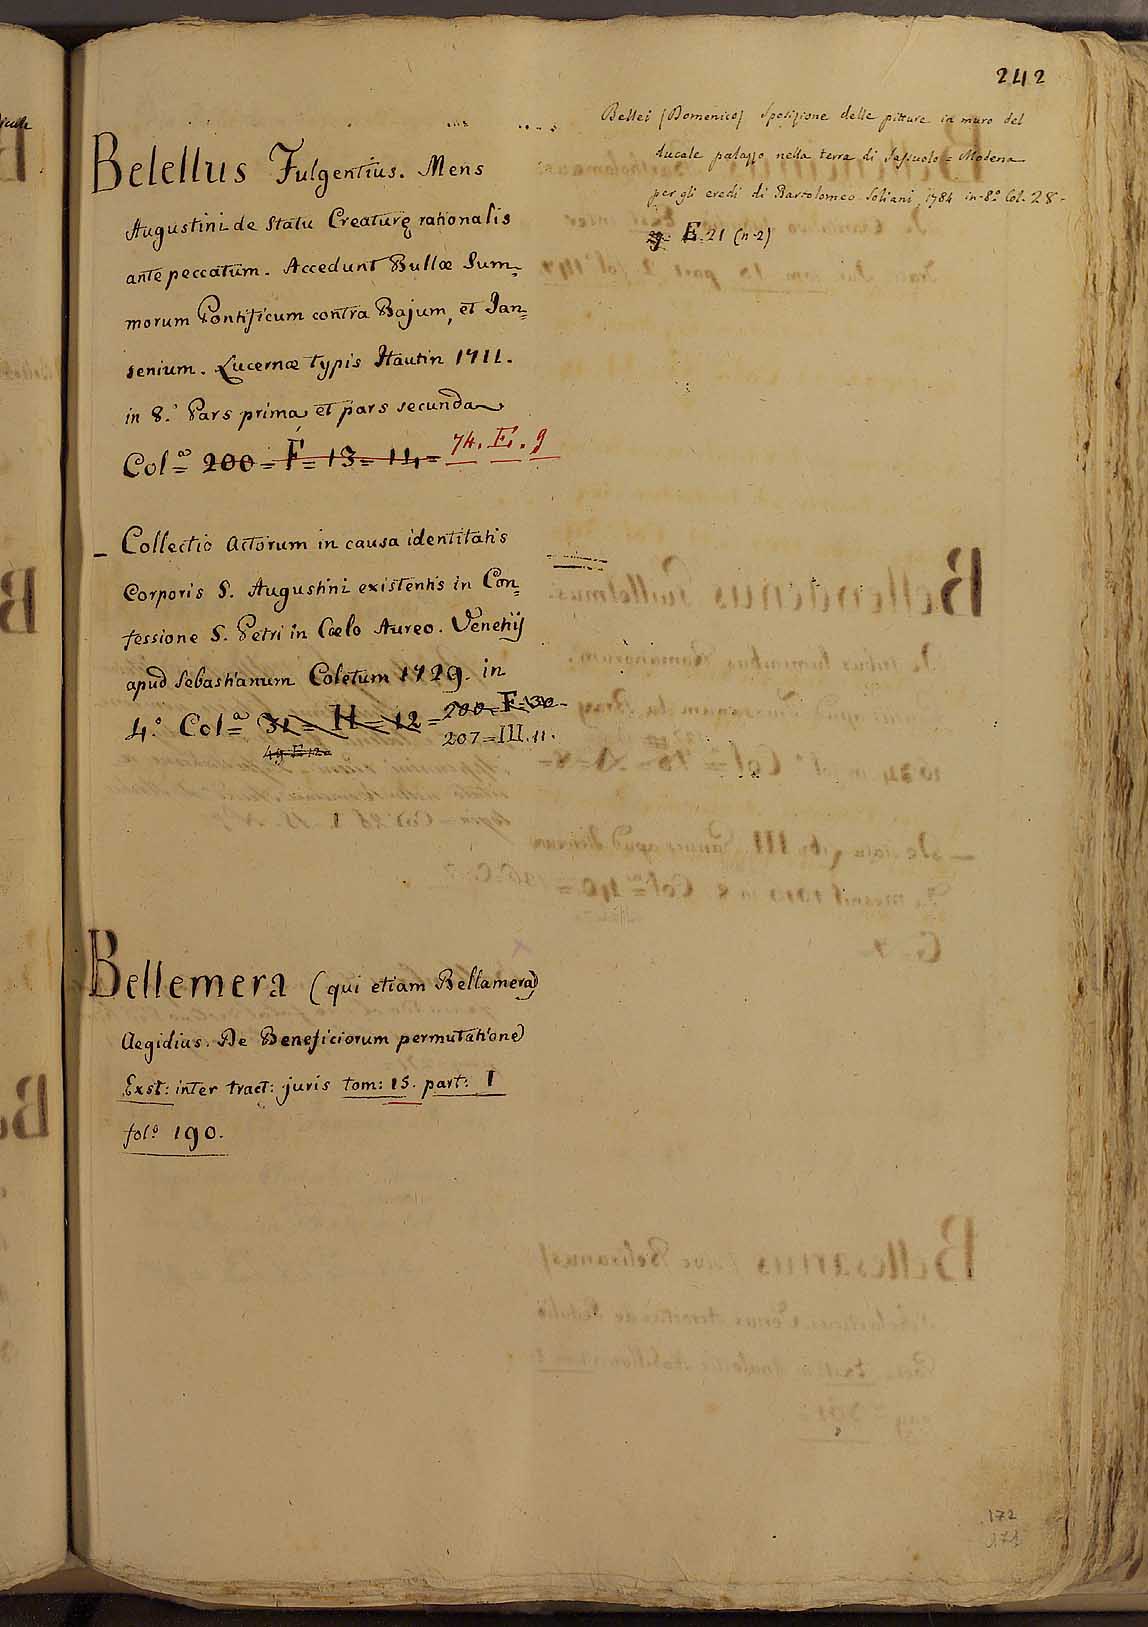 242
Belellus Fulgentius. Mens
Augustini de Statu Creaturę rationalis
ante peccatum. Accedunt Bullæ Sum=
morum Pontificum contra Bajum, et Jan=
senium. Lucernæ typis Hautin 1711.
in 8.° Pars prima et pars secunda
Col.ª 200 = F = 13 = 14 = 74. E. 9
– Collectio Actorum in causa identitatis
Corporis S. Augustini existentis in Con=
fessione S. Petri in Cœlo Aureo. Venetijs
apud Sebastianum Coletum 1729. in
4.° Col.ª 31 = H = 12 = 200 = F = 30 –
49 E 12
207 = III. 11.
Bellemera (qui etiam Bellamera)
Aegidius. De Beneficiorum permutatione
Exst: inter tract: juris tom: 15. part: I
fol.° 190.
Bellei (Domenico) Sposizione delle pitture in muro del
ducale palazzo nella terra di Sassuolo = Modena
per gli eredi di Bartolomeo Soliani, 1784 in-8.° Col. 28 –
E. 21 (n-2)
172
171